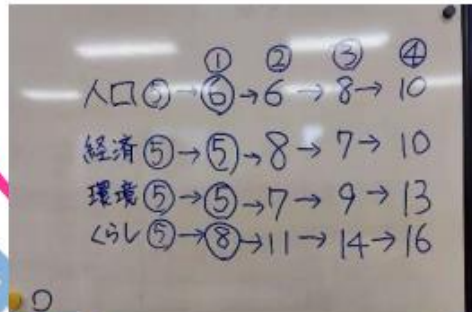 ① ② ③ ④
人口 ⑤→⑥→6→8→10
経済 ⑤→⑤→8→7→10
環境 ⑤→⑤→7→9→13
くらし ⑤→⑧→11→14→16